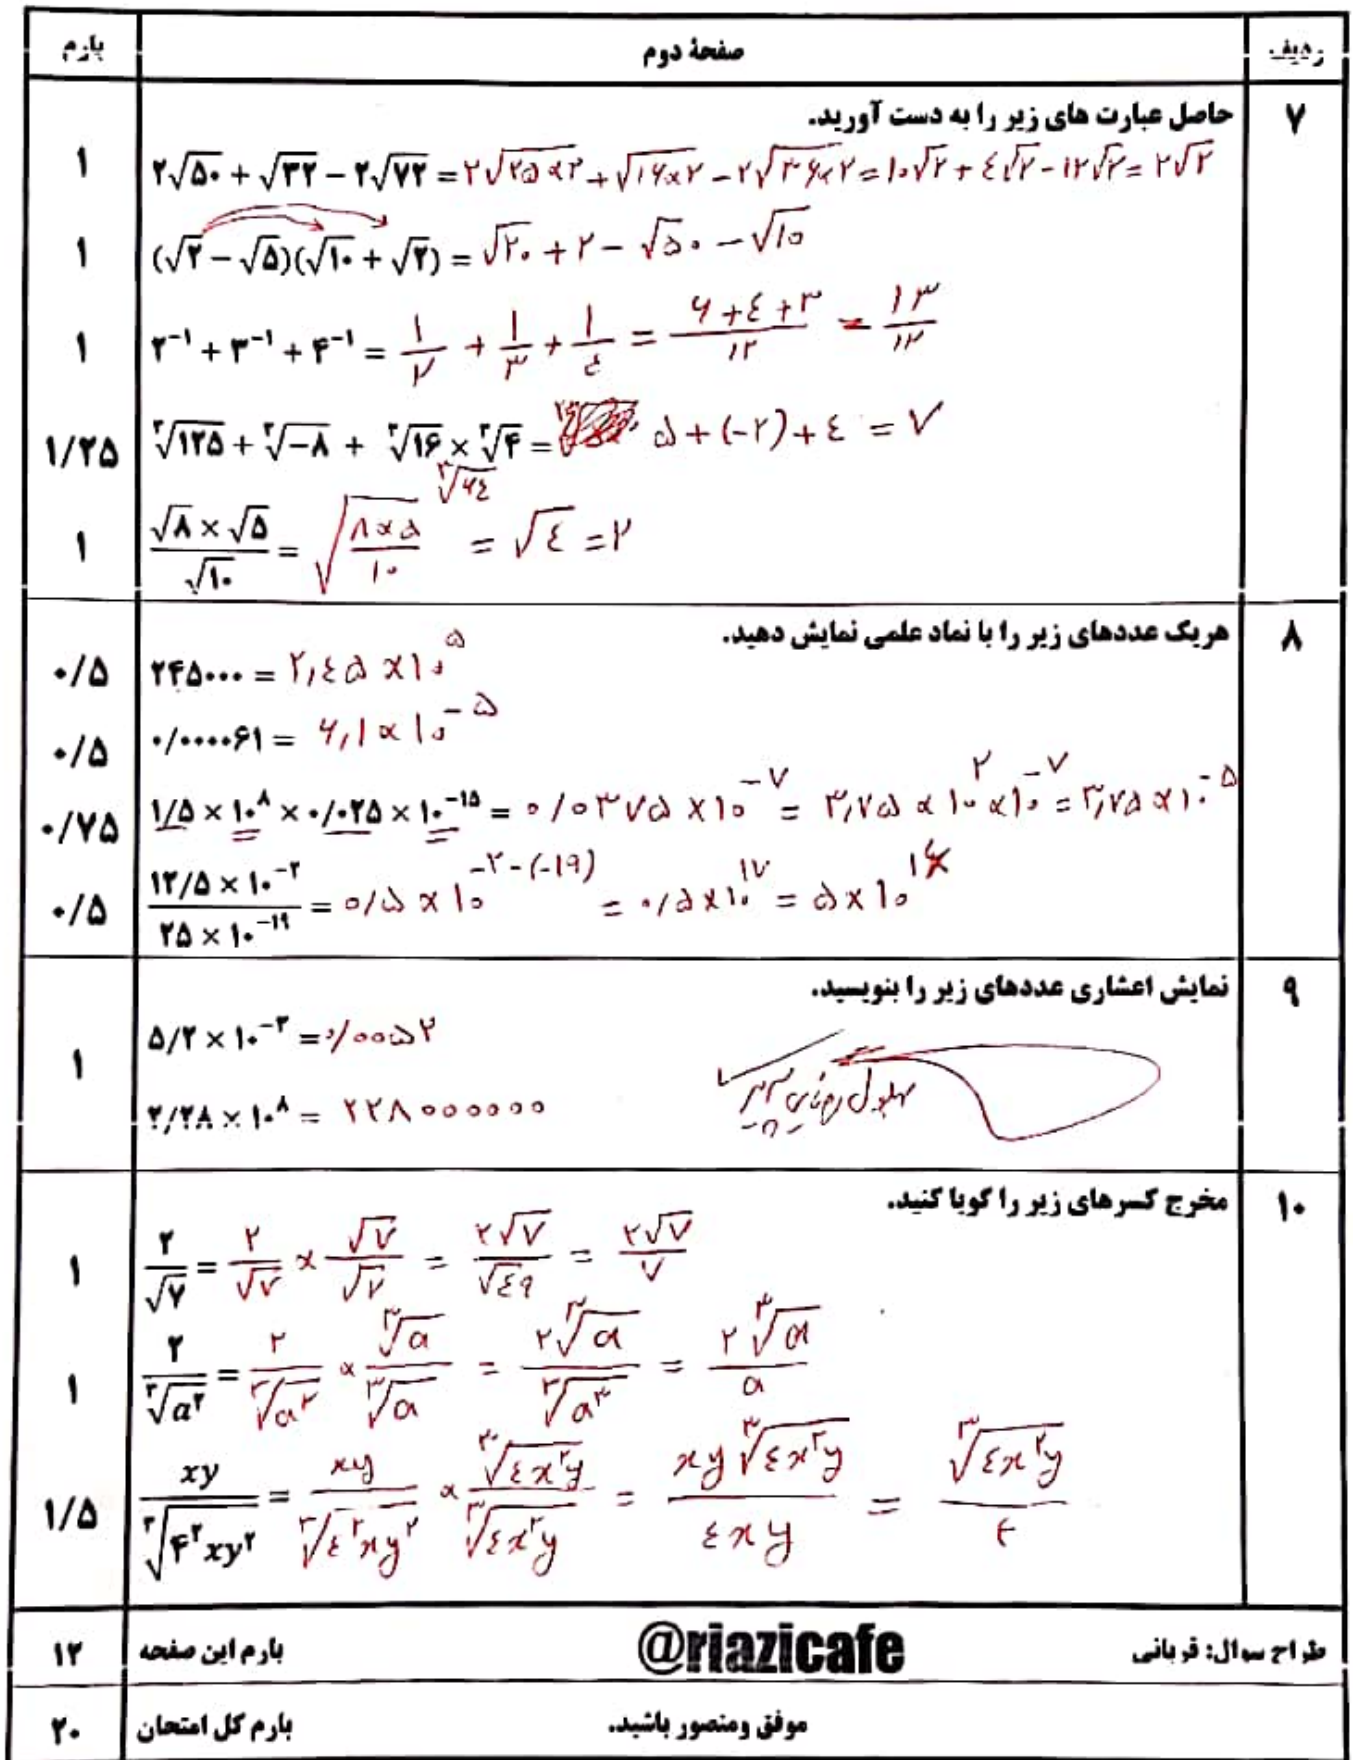 ردیف صفحهٔ دوم بارم
۷ حاصل عبارت های زیر را به دست آورید.
۱ ۲√۵۰ + √۳۲ − ۲√۷۲ = ۲√۲۵×۲ + √۱۶×۲ − ۲√۳۶×۲ = ۱۰√۲ + ۴√۲ − ۱۲√۲ = ۲√۲
۱ (√۲ − √۵)(√۱۰ + √۲) = √۲۰ + ۲ − √۵۰ − √۱۰
۱ ۲⁻¹ + ۳⁻¹ + ۴⁻¹ = ۱/۲ + ۱/۳ + ۱/۴ = (۶+۴+۳)/۱۲ = ۱۳/۱۲
۱/۲۵ ∛۱۲۵ + ∛−۸ + ∛۱۶ × ∛۴ = ۵ + (−۲) + ۴ = ۷
∛۶۴
۱ (√۸ × √۵)/√۱۰ = √((۸×۵)/۱۰) = √۴ = ۲
۸ هریک عددهای زیر را با نماد علمی نمایش دهید.
۰/۵ ۲۴۵۰۰۰ = ۲٫۴۵ × ۱۰⁵
۰/۵ ۰/۰۰۰۰۶۱ = ۶٫۱ × ۱۰⁻⁵
۰/۷۵ ۱/۵ × ۱۰⁸ × ۰/۰۲۵ × ۱۰⁻¹⁵ = ۰/۰۳۷۵ × ۱۰⁻⁷ = ۳٫۷۵ × ۱۰² × ۱۰⁻⁷ = ۳٫۷۵ × ۱۰⁻⁵
۰/۵ (۱۲/۵ × ۱۰⁻²)/(۲۵ × ۱۰⁻¹⁹) = ۰/۵ × ۱۰⁻²⁻⁽⁻¹⁹⁾ = ۰/۵ × ۱۰¹⁷ = ۵ × ۱۰¹⁶
۹ نمایش اعشاری عددهای زیر را بنویسید.
۵/۲ × ۱۰⁻³ = ۰/۰۰۵۲
۱
۲/۲۸ × ۱۰⁸ = ۲۲۸۰۰۰۰۰۰
۱۰ مخرج کسرهای زیر را گویا کنید.
۱ ۲/√۷ = ۲/√۷ × √۷/√۷ = ۲√۷/√۴۹ = ۲√۷/۷
۱ ۲/∛a² = ۲/∛a² × ∛a/∛a = ۲∛a/∛a³ = ۲∛a/a
۱/۵ xy/∛(۴²xy²) = xy/∛(۴²xy²) × ∛(۴x²y)/∛(۴x²y) = xy∛(۴x²y)/۴xy = ∛(۴x²y)/۴
طراح سوال: قربانی @riazicafe بارم این صفحه ۱۲
موفق ومنصور باشید. بارم کل امتحان ۲۰